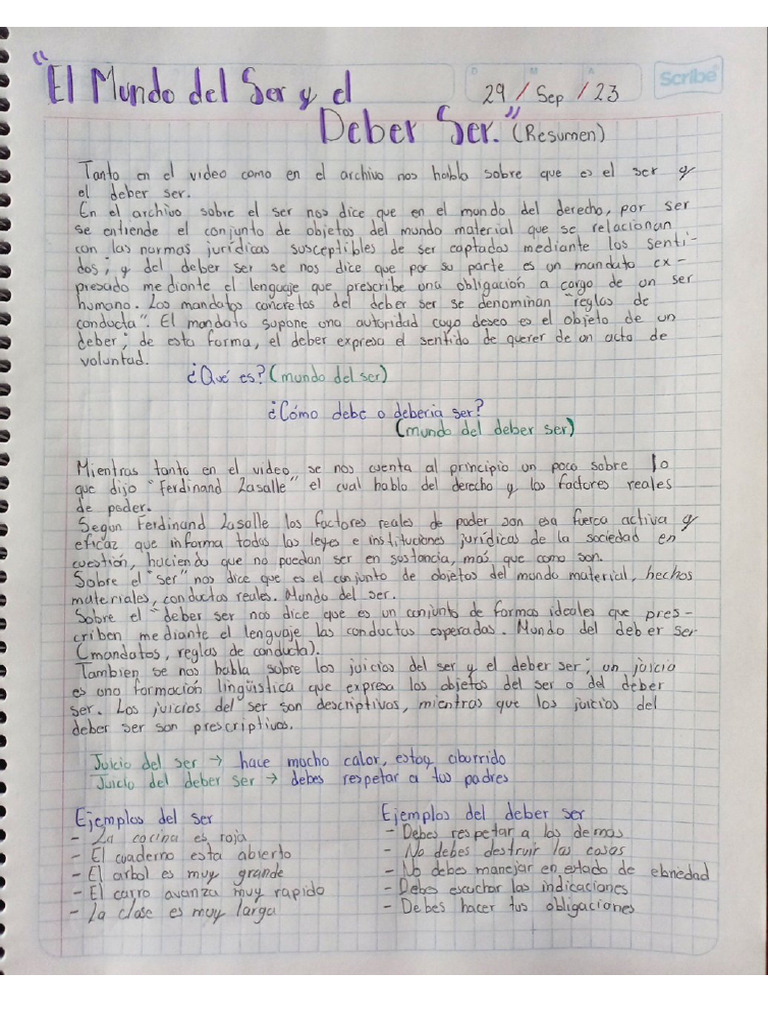 "El Mundo del Ser y el
D M A
29 / Sep / 23
Scribe
Deber Ser." (Resumen)
Tanto en el video como en el archivo nos habla sobre que es el ser y
el deber ser.
En el archivo sobre el ser nos dice que en el mundo del derecho, por ser
se entiende el conjunto de objetos del mundo material que se relacionan
con las normas jurídicas susceptibles de ser captadas mediante los senti-
dos; y del deber ser se nos dice que por su parte es un mandato ex-
presado mediante el lenguaje que prescribe una obligación a cargo de un ser
humano. Los mandatos concretos del deber ser se denominan "reglas de
conducta". El mandato supone una autoridad cuyo deseo es el objeto de un
deber; de esta forma, el deber expresa el sentido de querer de un acto de
voluntad.
¿Qué es? (mundo del ser)
¿Cómo debe o deberia ser?
(mundo del deber ser)
Mientras tanto en el video se nos cuenta al principio un poco sobre lo
que dijo "Ferdinand Lasalle" el cual hablo del derecho y los factores reales
de poder.
Segun Ferdinand Lasalle los factores reales de poder son esa fuerca activa y
eficaz que informa todas las leyes e instituciones jurídicas de la sociedad en
cuestión, haciendo que no puedan ser en sustancia, más que como son.
Sobre el "ser" nos dice que es el conjunto de objetos del mundo material, hechos
materiales, conductas reales. Mundo del ser.
Sobre el "deber ser nos dice que es un conjunto de formas ideales que pres-
criben mediante el lenguaje las conductas esperadas. Mundo del deber ser
(mandatos, reglas de conducta).
Tambien se nos habla sobre los juicios del ser y el deber ser; un juicio
es una formación lingüistica que expresa los objetos del ser o del deber
ser. Los juicios del ser son descriptivos, mientras que los juicios del
deber ser son prescriptivos.
Juicio del ser → hace mucho calor, estoy aburrido
Juicio del deber ser → debes respetar a tus padres
Ejemplos del ser
- La cocina es roja
- El cuaderno esta abierto
- El arbol es muy grande
- El carro avanza muy rapido
- La clase es muy larga
Ejemplos del deber ser
- Debes respetar a los demás
- No debes destruir las cosas
- No debes manejar en estado de ebriedad
- Debes escuchar las indicaciones
- Debes hacer tus obligaciones